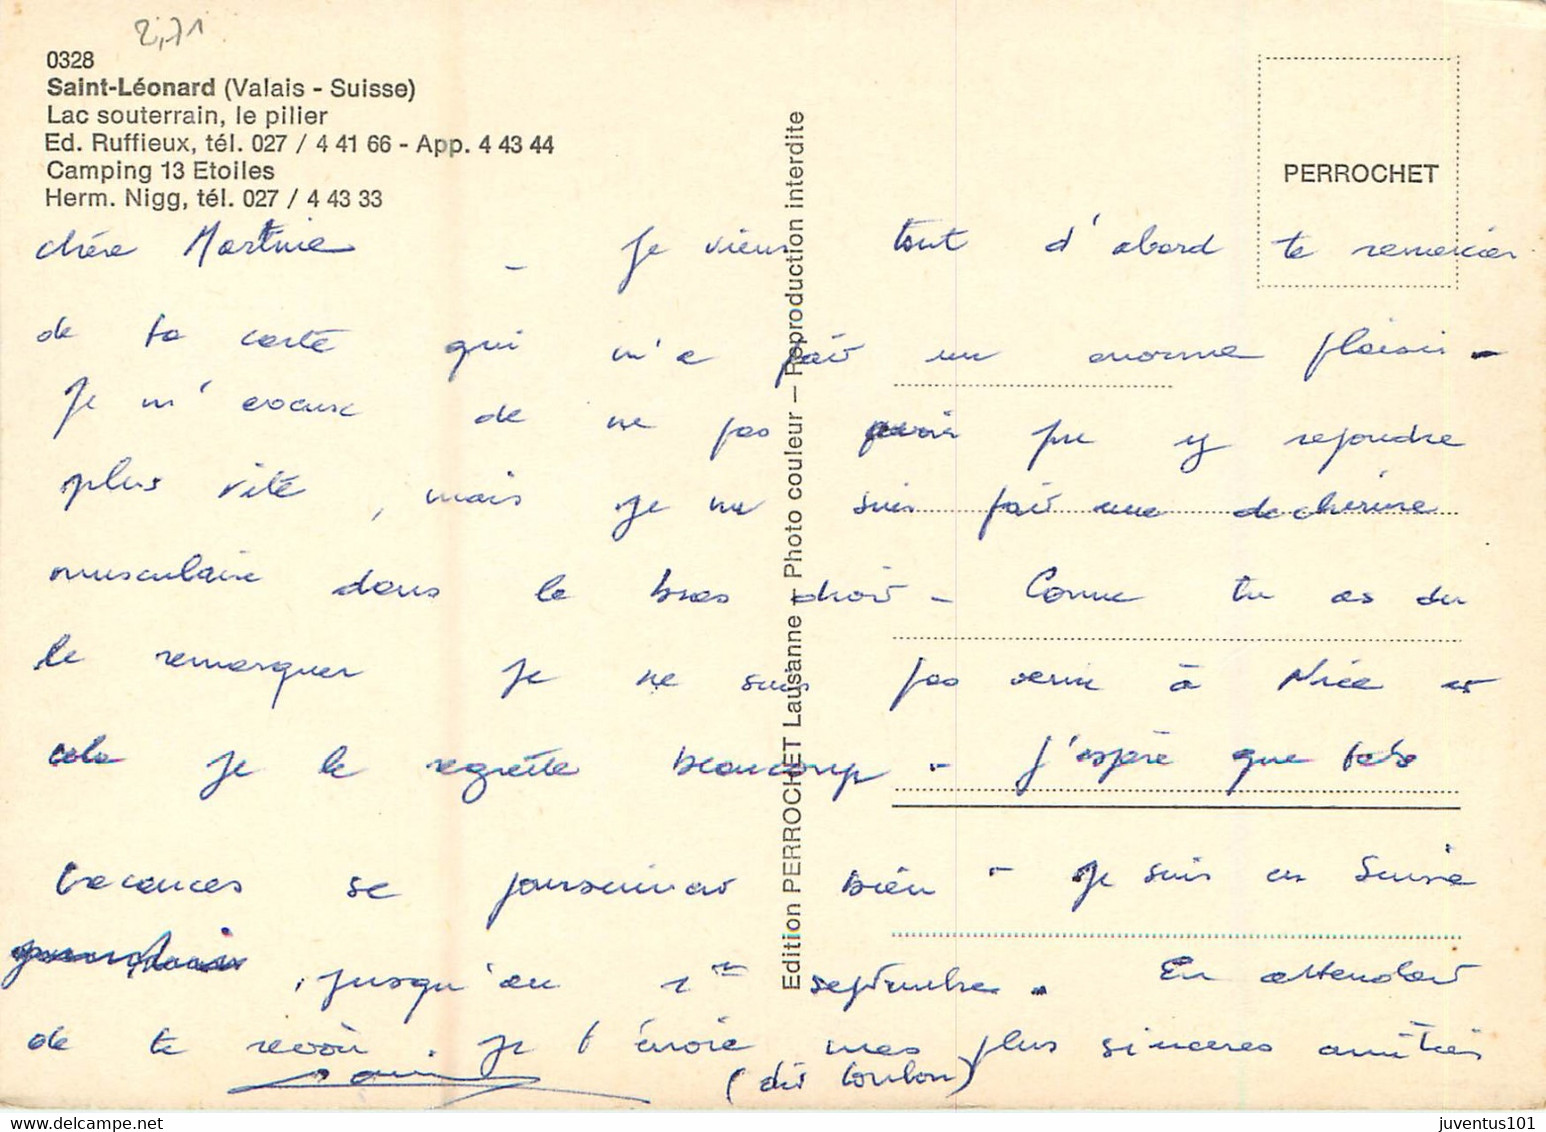 2,71
0328
Saint-Léonard (Valais - Suisse)
Lac souterrain, le pilier
Ed. Ruffieux, tél. 027 / 4 41 66 - App. 4 43 44
Camping 13 Etoiles
Herm. Nigg, tél. 027 / 4 43 33
PERROCHET
Edition PERROCHET Lausanne – Photo couleur – Reproduction interdite
chère Martine - Je viens tout d'abord te remercier
de ta carte qui m'a fait un enorme plaisir -
Je m'excuse de ne pas avoir pu y repondre
plus vite, mais je me suis fait une dechirure
musculaire dans le bras droit - Comme tu as du
le remarquer je ne suis pas venu à Nice et
cela je le regrette beaucoup - J'espère que tes
vacances se poursuivent bien - Je suis en Suisse
jusqu'au 1er septembre. En attendant
de te revoir. je t'envoie mes plus sinceres amitiés
(dit
juventus101